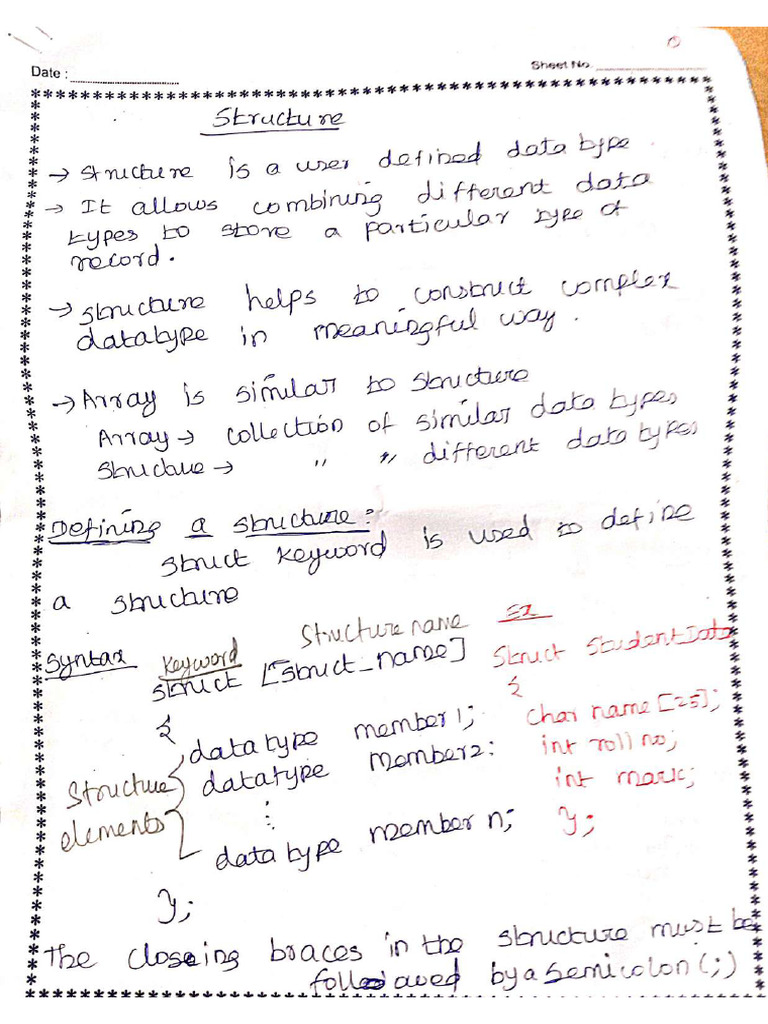 Date :
Sheet No.
Structure
→ Structure is a user defined data type
→ It allows combining different data
types to store a particular type of
record.
→ structure helps to construct complex
datatype in meaningful way.
→ Array is similar to structure
Array → collection of similar data types
Structure → " " different data types
Defining a structure:
struct keyword is used to define
a structure
Syntax Keyword Structure name Ex
struct [struct_name] Struct Student_Data
{ {
datatype member1; char name[25];
datatype member2: int roll no;
Structure elements
⋮ int mark;
datatype member n; };
};
The closeing braces in the structure must be
followed by a semicolon (;)